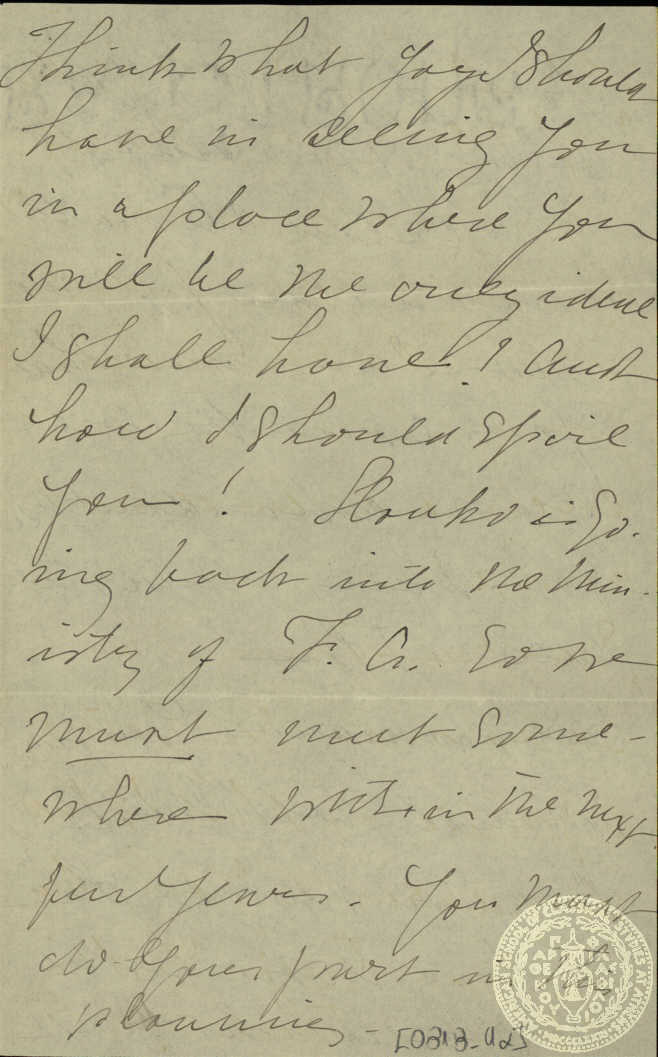 Think what joy I should
have in seeing you
in a place where you
will be the only ideal
I shall have! And
how I should spoil
you! Slouko is go-
ing back into the Min-
istry of F. A. so we
must meet some-
where within the next
few years. You must
do your part in this
planning -